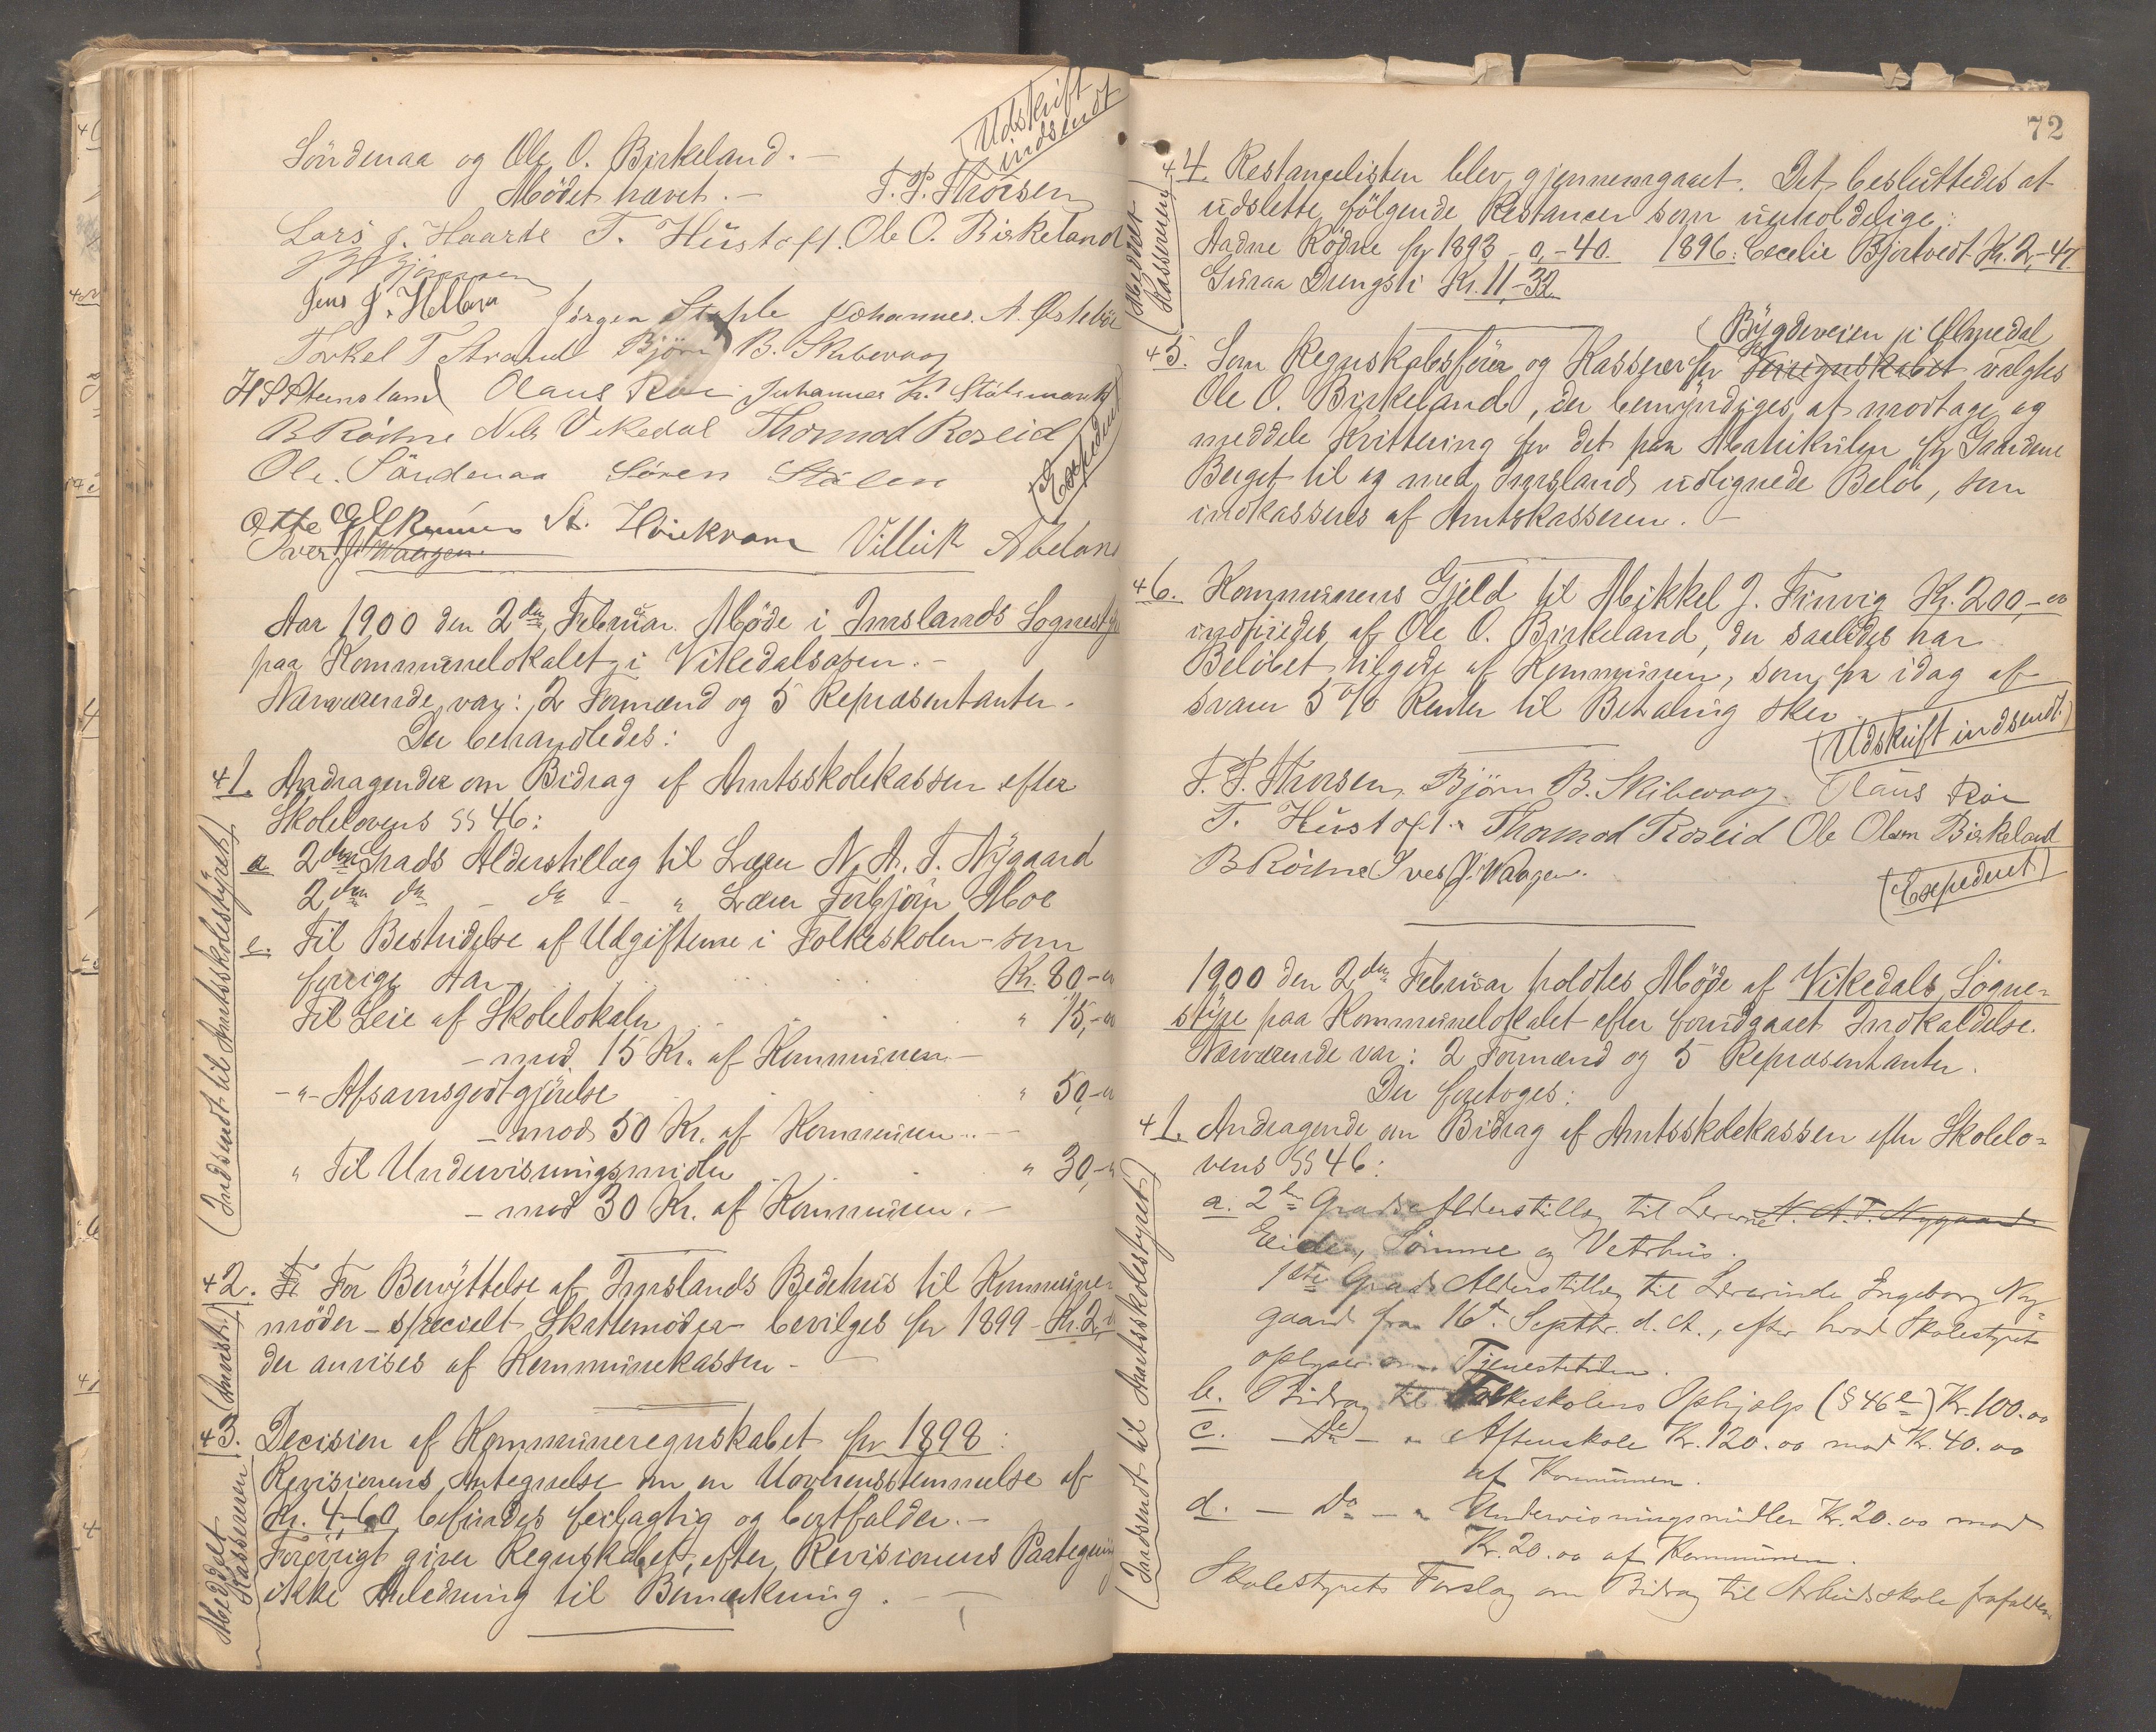 Söndenaa og Ole O. Birkeland. –
Udskrift
indsendt
Mödet hævet. – T. P. Thorsen
Lars J. Haarte T. Hüstoft. Ole O. Birkeland
Jens J. Helleren Jörgen Staple Johannes. A. Østebö
Torkel T Strand Björn B. Skibevaag
H S Steensland Olaus Röe Johannes K. Stölsmark
B Rödne Nils Vikedal Thormod Roseid
Ole. Söndenaa Sören Stölen
(Expederet)
Otte St. Hviekvam Villik Abeland
Iver J. Waagen.
Aar 1900 den 2den Februar Möde i Imslands Sognesty
paa Kommünelokalet i Vikedalsosen. –
Nærværende var: 2 Formænd og 5 Repræsentanter.
Der behandledes:
41. Andragender om Bidrag af Amtsskolekassen efter
Skolelovens §§ 46:
(Indsendt til Amtsskolestyret)
a 2den Grads Alderstillæg til Lærer N. A. T. Nÿgaard
2den do – do – " Lærer Torbjörn Moe
e. Til Bestridelse af Udgifterne i Folkeskolen – som
forrige Aar Kr. 80 –
Til Leie af Skolelokaler " 15, –
– mod 15 Kr. af Kommünen –
– " – Afsavnsgodtgjörelse " 50, –
– mod 50 Kr. af Kommünen. –
" Til Undervisningsmidler " 30, –
– mod 30 Kr. af Kommünen. –
42. For Benÿttelse af Imslands Bedehüs til Kommüne-
möder – specielt Skattemöder bevilges for 1899 Kr. 2,
der anvises af Kommünekassen –
(Anvist)
43. Decision af Kommüneregnskabet for 1898:
Revisionens Antegnelse om en Uovensstemmelse af
Kr. 4,60 befindes feilagtig og bortfalder. –
Forövrigt giver Regnskabet, efter Revisionens Paategning
ikke Anledning til Bemærkning. –
Meddelt
Kassereren
72
44. Restancelisten blev gjennemgaaet. Det besluttedes at
udslette fölgende Restancer som üerholdelige:
Aadne Rödne for 1893 – 0, – 40. 1896: Cecelie Bjortvedt Kr. 2, – 47.
Güraa Drengsli Kr. 11, – 32
(Meddelt
Kassereren)
(Bÿgdeveien i Ølmedal
45. Som Regnskabsförer og Kasserer for Veiregnskabet valgtes
Ole O. Birkeland, der bemÿndiges at modtage og
meddele Kvittering for det paa Matrikülen for Gaardene
Berget til og med Imsland üdlignede Belöb, som
indkasseres af Amtskassereren. –
46. Kommünens Gjeld til Mikkel J. Finvig Kr. 200, – 00
indfriedes af Ole O. Birkeland, der saaledes har
Belöbet tilgode af Kommünen, som fra idag af
svarer 5 % Renter til Betaling sker
(Udskrift indsendt.)
T. P. Thorsen, Björn B. Skibevaag. Olaüs Röe
T. Hüstoft. Thormod Roseid Ole Olsen Birkeland
B Rödne Iver J. Waagen.
(Expederet)
1900 den 2den Februar holdtes Möde af Vikedals Sogne-
styre paa Kommünelokalet efter forudgaaet Indkaldelse.
Nærværende var: 2 Formænd og 5 Repræsentanter.
Der foretoges:
41. Andragende om Bidrag af Amtsskolekassen efter Skolelo-
vens §§ 46:
(Indsendt til Amtsskolestyret)
a. 2den Grads Alderstillæg til Lærerne N. A. T. Nygaard
Eide, Sömme og Vetrhus.
1ste Grads Alderstillæg til Lærerinde Ingeborg Ny-
gaard fra 16de Septbr. d. A., efter hvad Skolestyret
oplyser om Tjenestetiden.
b. Bidrag til Folkeskolens Ophjælp (§ 46 e) Kr. 100.00
c. – Do – " Aftenskole Kr. 120.00 mod Kr. 40.00
af Kommunen.
d. – Do – " Undervisningsmidler Kr. 20.00 mod
Kr. 20.00 af Kommunen.
Skolestyrets Forslag om Bidrag til Arbeidsskole frafaldes